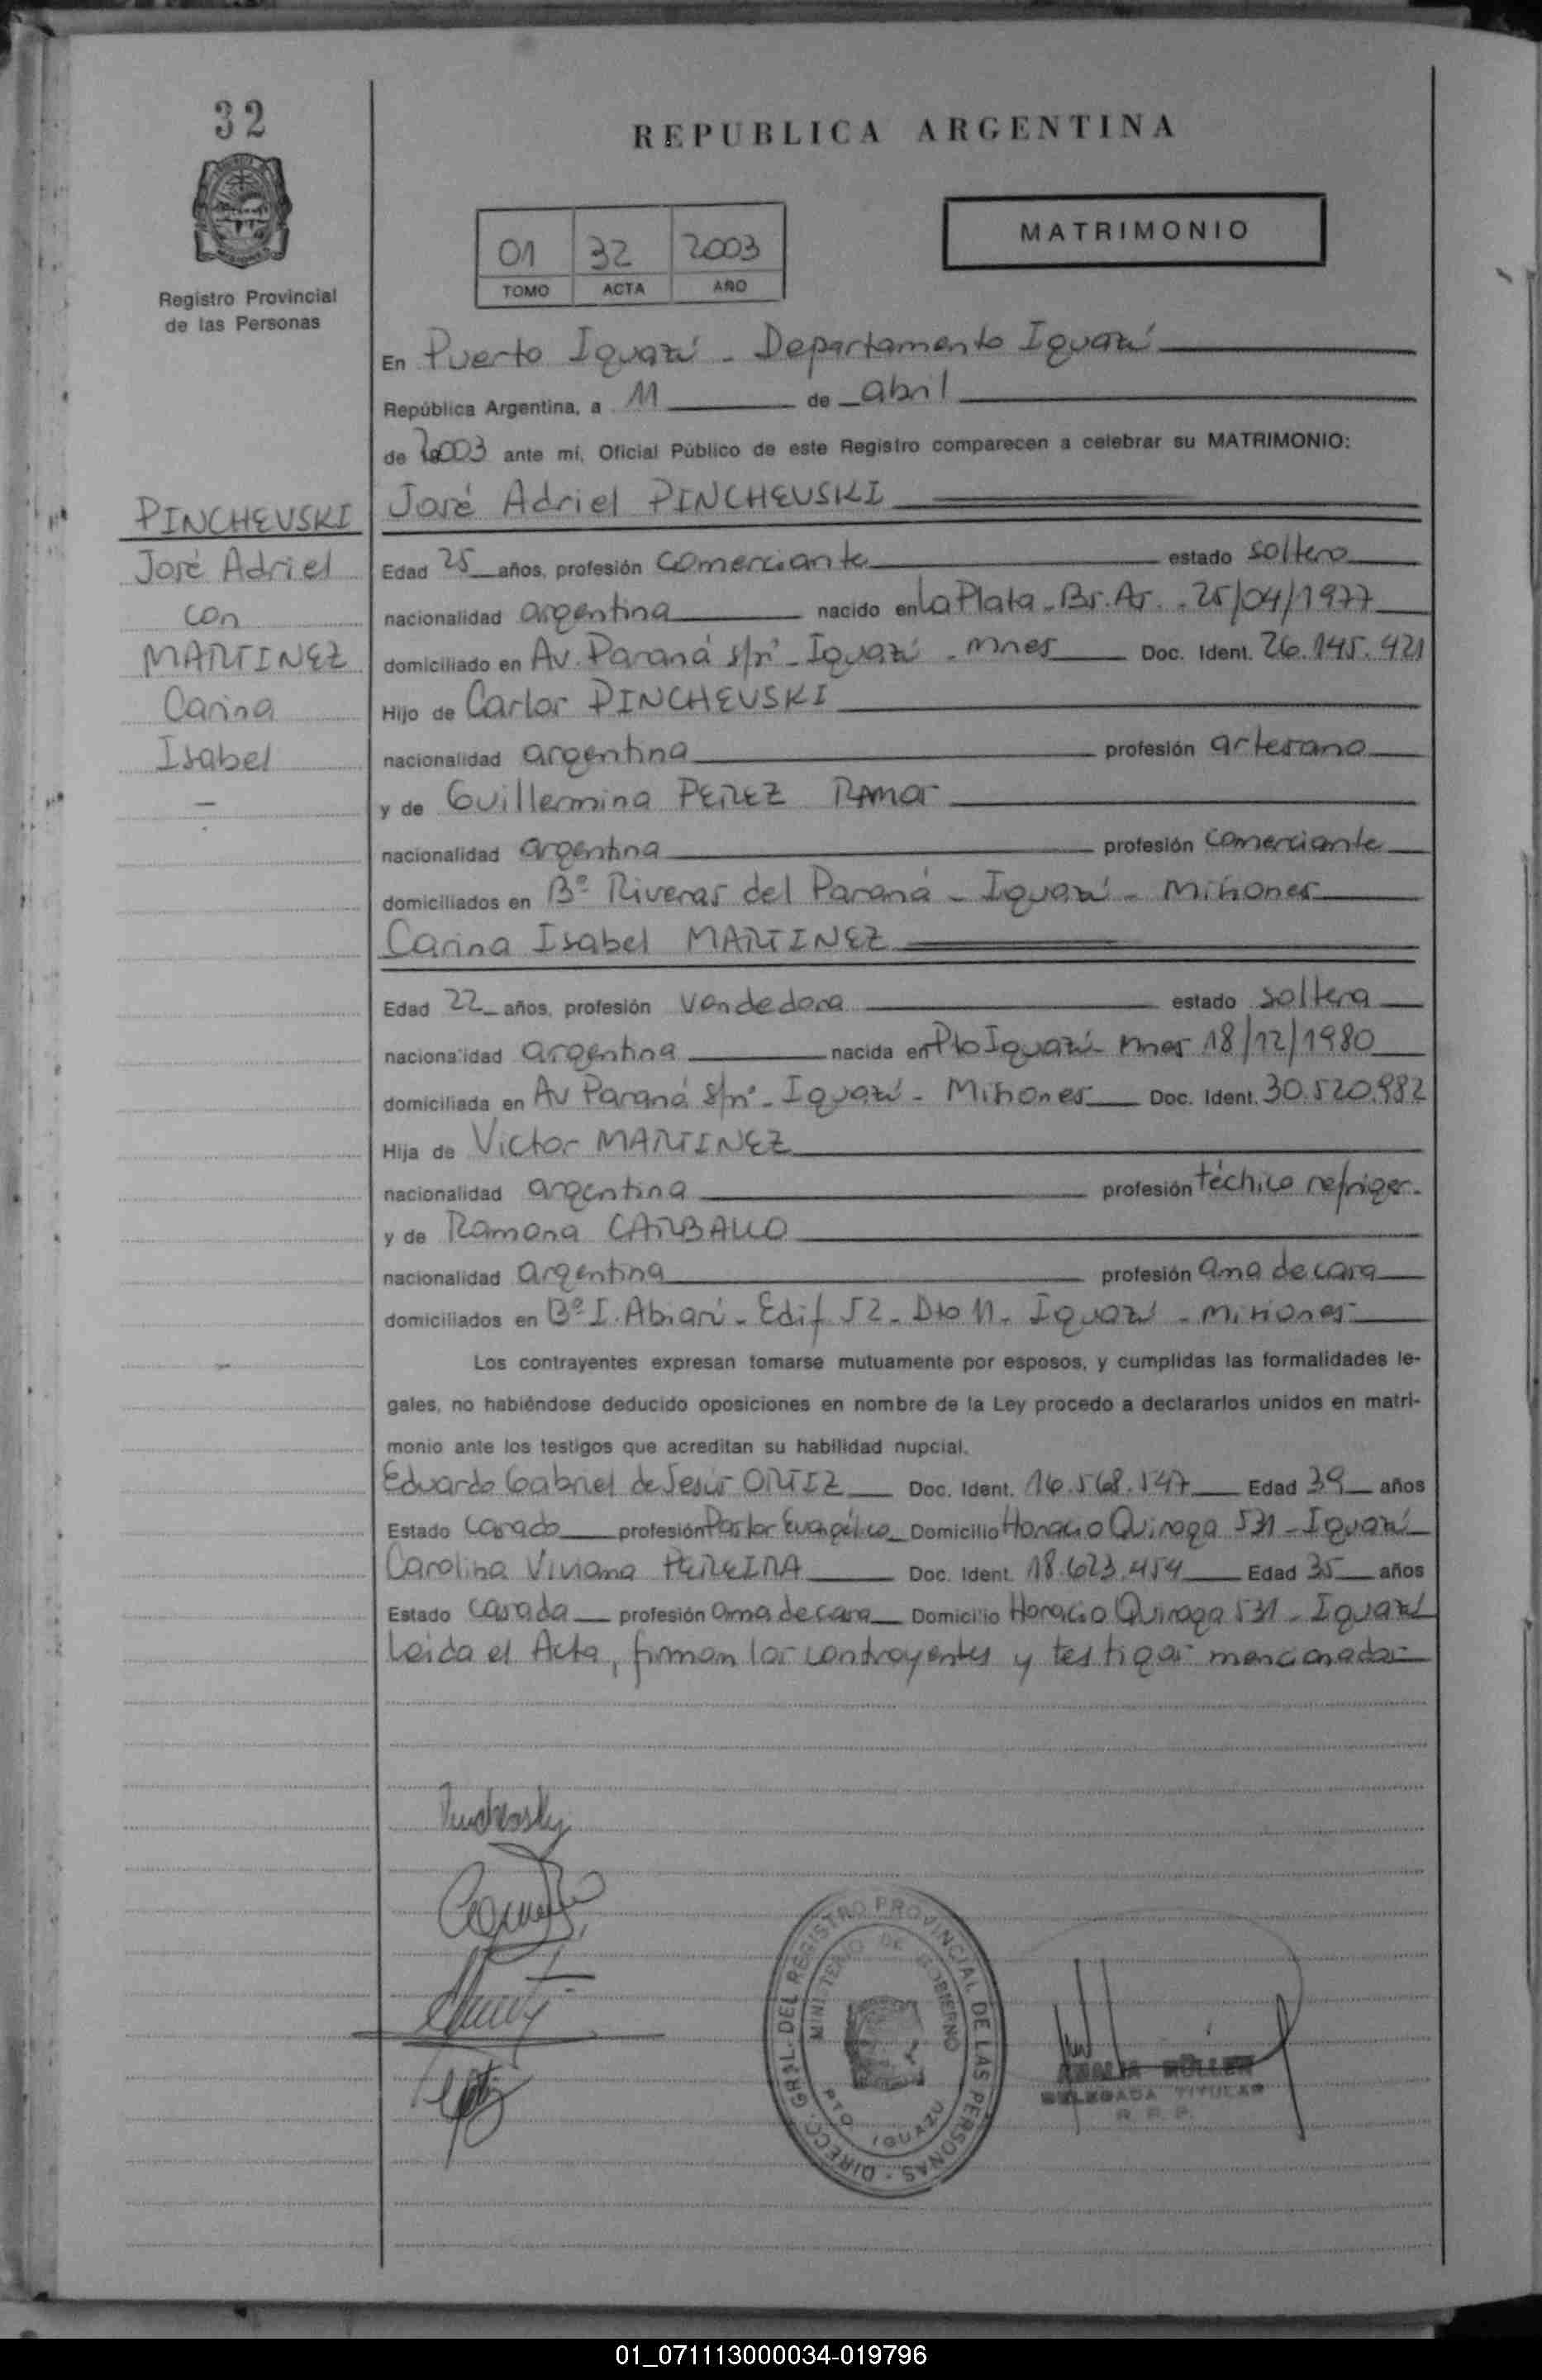 32
REPUBLICA ARGENTINA
MATRIMONIO
01 32 2003
TOMO ACTA AÑO
Registro Provincial
de las Personas
En Puerto Iguazú - Departamento Iguazú
República Argentina, a 11 de abril
de 2003 ante mí, Oficial Público de este Registro comparecen a celebrar su MATRIMONIO:
PINCHEVSKI
José Adriel
con
MARTINEZ
Carina
Isabel
José Adriel PINCHEVSKI
Edad 25 años, profesión comerciante estado soltero
nacionalidad argentina nacido en La Plata - Bs. As. - 25/04/1977
domiciliado en Av. Paraná s/nº - Iguazú - Mnes Doc. Ident. 26.145.421
Hijo de Carlos PINCHEVSKI
nacionalidad argentina profesión artesano
y de Guillermina PEREZ RAMOS
nacionalidad argentina profesión comerciante
domiciliados en Bº Riveras del Paraná - Iguazú - Misiones
Carina Isabel MARTINEZ
Edad 22 años, profesión vendedora estado soltera
nacionalidad argentina nacida en Pto Iguazú - Mnes 18/12/1980
domiciliada en Av Paraná s/nº - Iguazú - Misiones Doc. Ident. 30.520.982
Hija de Victor MARTINEZ
nacionalidad argentina profesión téchico refriger.
y de Ramona CARBALLO
nacionalidad argentina profesión ama de casa
domiciliados en Bº I. Abiarí - Edif 52 - Dto 11 - Iguazú - Misiones
Los contrayentes expresan tomarse mutuamente por esposos, y cumplidas las formalidades le-
gales, no habiéndose deducido oposiciones en nombre de la Ley procedo a declararlos unidos en matri-
monio ante los testigos que acreditan su habilidad nupcial.
Eduardo Gabriel de Jesús ORTIZ Doc. Ident. 16.568.547 Edad 39 años
Estado casado profesión Pastor Evangélico Domicilio Horacio Quiroga 531 - Iguazú
Carolina Viviana PEREIRA Doc. Ident. 18.623.454 Edad 35 años
Estado casada profesión ama de casa Domicilio Horacio Quiroga 531 - Iguazú
Leida el Acta, firman los contrayentes y testigos mencionados
DIRECC. GRAL. DEL REGISTRO PROVINCIAL DE LAS PERSONAS -
MINISTERIO DE GOBIERNO
PTO IGUAZU
MÜLLER
DELEGADA TITULAR
R. P. P.
01_071113000034-019796